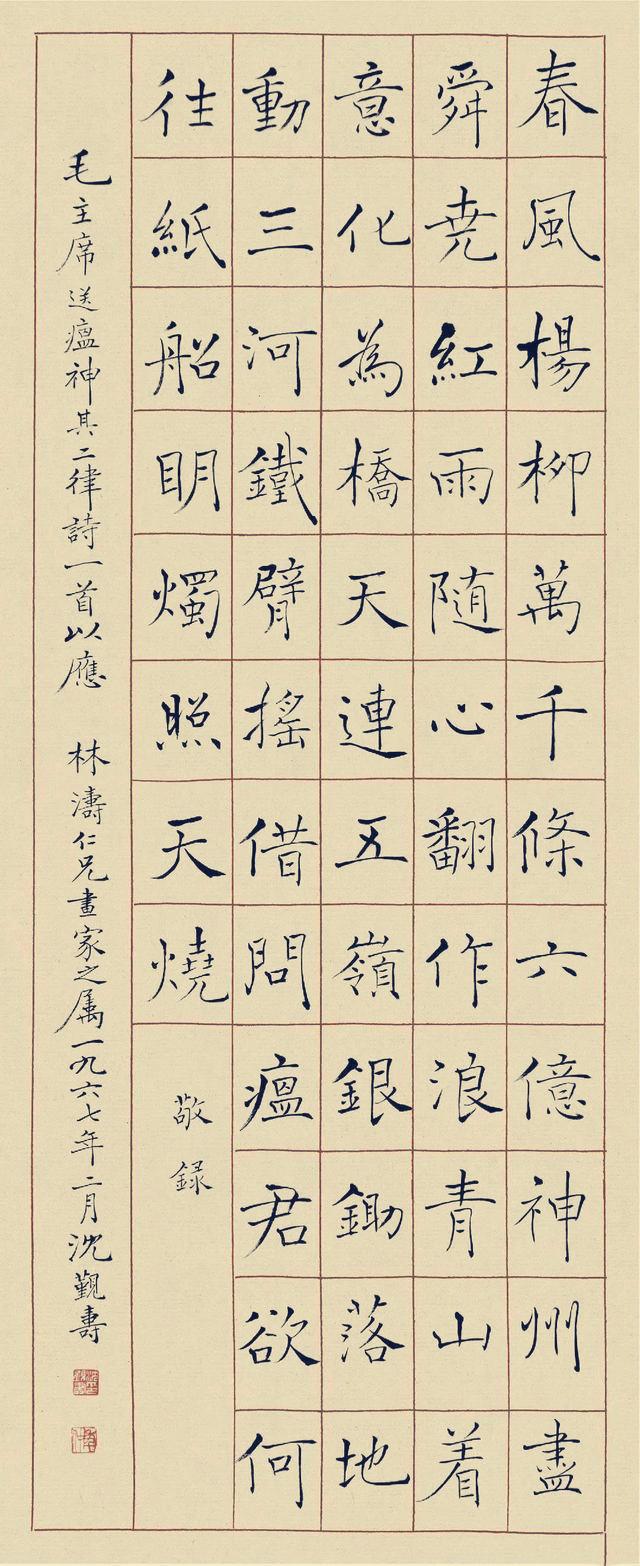 春風楊柳萬千條六億神州盡
舜尭紅雨随心翻作浪青山着
意化為橋天連五嶺銀鋤落地
動三河鐵臂搖借問瘟君欲何
往紙船明燭照天燒
敬録
毛主席送瘟神其二律詩一首以應
林濤仁兄畫家之属一九六七年二月沈覲壽